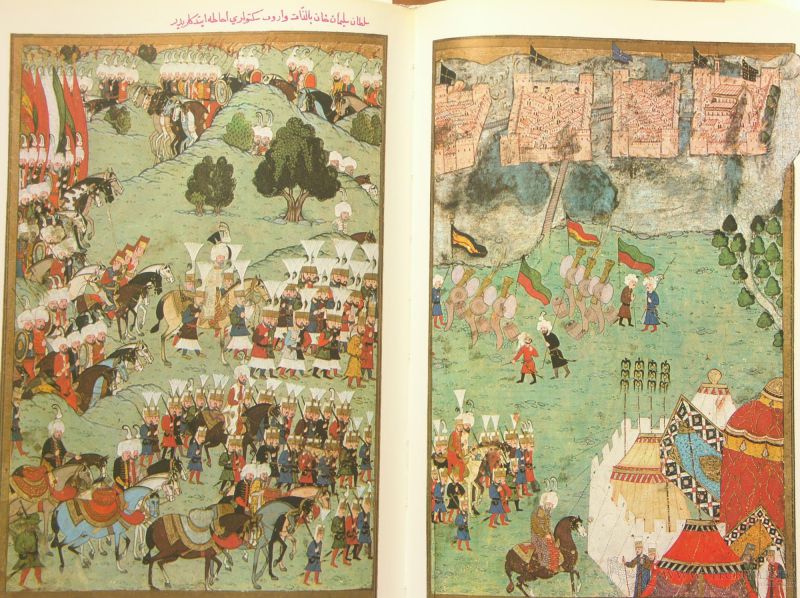 سلطان سليمان خان بالذّات واروب سكتواري احاطه ايتدكلريدر